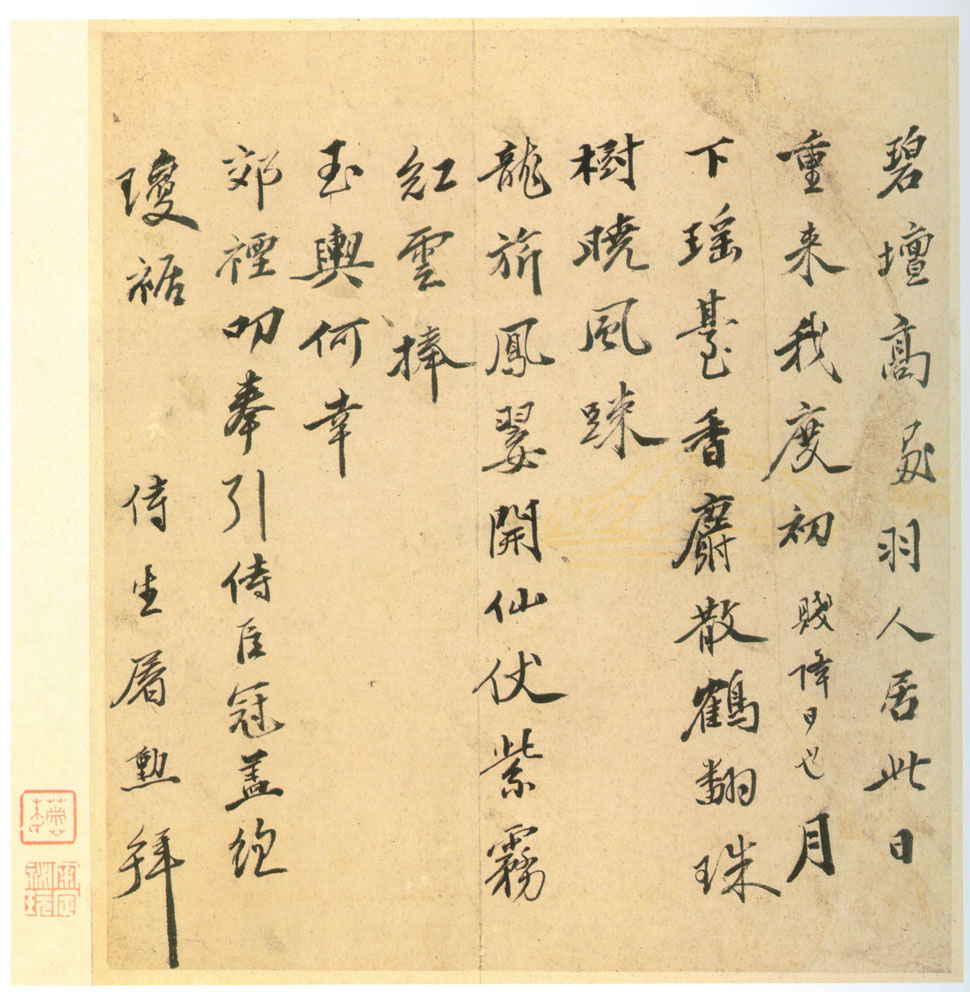 碧壇高處羽人居此日
重来我度初賤降日也月
下瑶臺香麝散鶴翻珠
樹曉風踈
龍旂鳳翣開仙仗紫霧
紅雲捧
玉輿何幸
郊禋叨奉引侍臣冠蓋繞
瓊裾
侍生屠勳拜